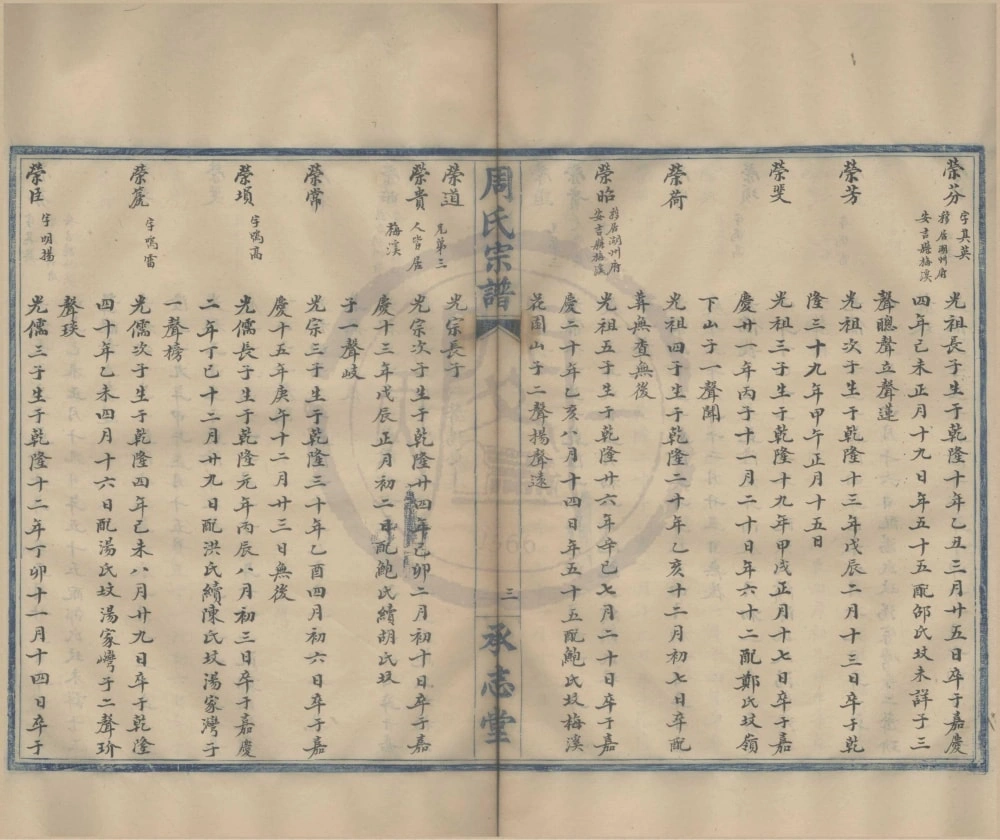 榮芬 字真英 移居湖州府安吉縣梅溪
光祖長子生于乾隆十年乙丑三月廿五日卒于嘉慶
四年己未正月十九日年五十五配邵氏坟未詳子三
聲聰聲立聲蓮
榮芳
光祖次子生于乾隆十三年戊辰二月十三日卒于乾
隆三十九年甲午正月十五日
榮斐
光祖三子生于乾隆十九年甲戌正月十七日卒于嘉
慶廿一年丙子十一月二十日年六十二配鄭氏坟嶺
下山子一聲開
榮荷
光祖四子生于乾隆二十年乙亥十二月初七日卒配
葬無查無後
榮昭 移居湖州府安吉縣梅溪
光祖五子生于乾隆廿六年辛巳七月二十日卒于嘉
慶二十年乙亥八月十四日年五十五配鮑氏坟梅溪
花園山子二聲揚聲遠
周氏宗譜
三
承志堂
榮道
光宗長子
榮貴 兄弟三人皆居梅溪
光宗次子生于乾隆廿四年己卯二月初十日卒于嘉
慶十三年戊辰正月初二日配鮑氏續胡氏坟
子一聲岐
榮常
光宗三子生于乾隆三十年乙酉四月初六日卒于嘉
慶十五年庚午十二月廿三日無後
榮塤 字鳴高
光儒長子生于乾隆元年丙辰八月初三日卒于嘉慶
二年丁巳十二月廿九日配洪氏續陳氏坟湯家灣子
一聲榜
榮麓 字鳴雷
光儒次子生于乾隆四年己未八月廿九日卒于乾隆
四十年乙未四月十六日配湯氏坟湯家灣子二聲玠
聲琰
榮任 字明揚
光儒三子生于乾隆十二年丁卯十一月十四日卒于